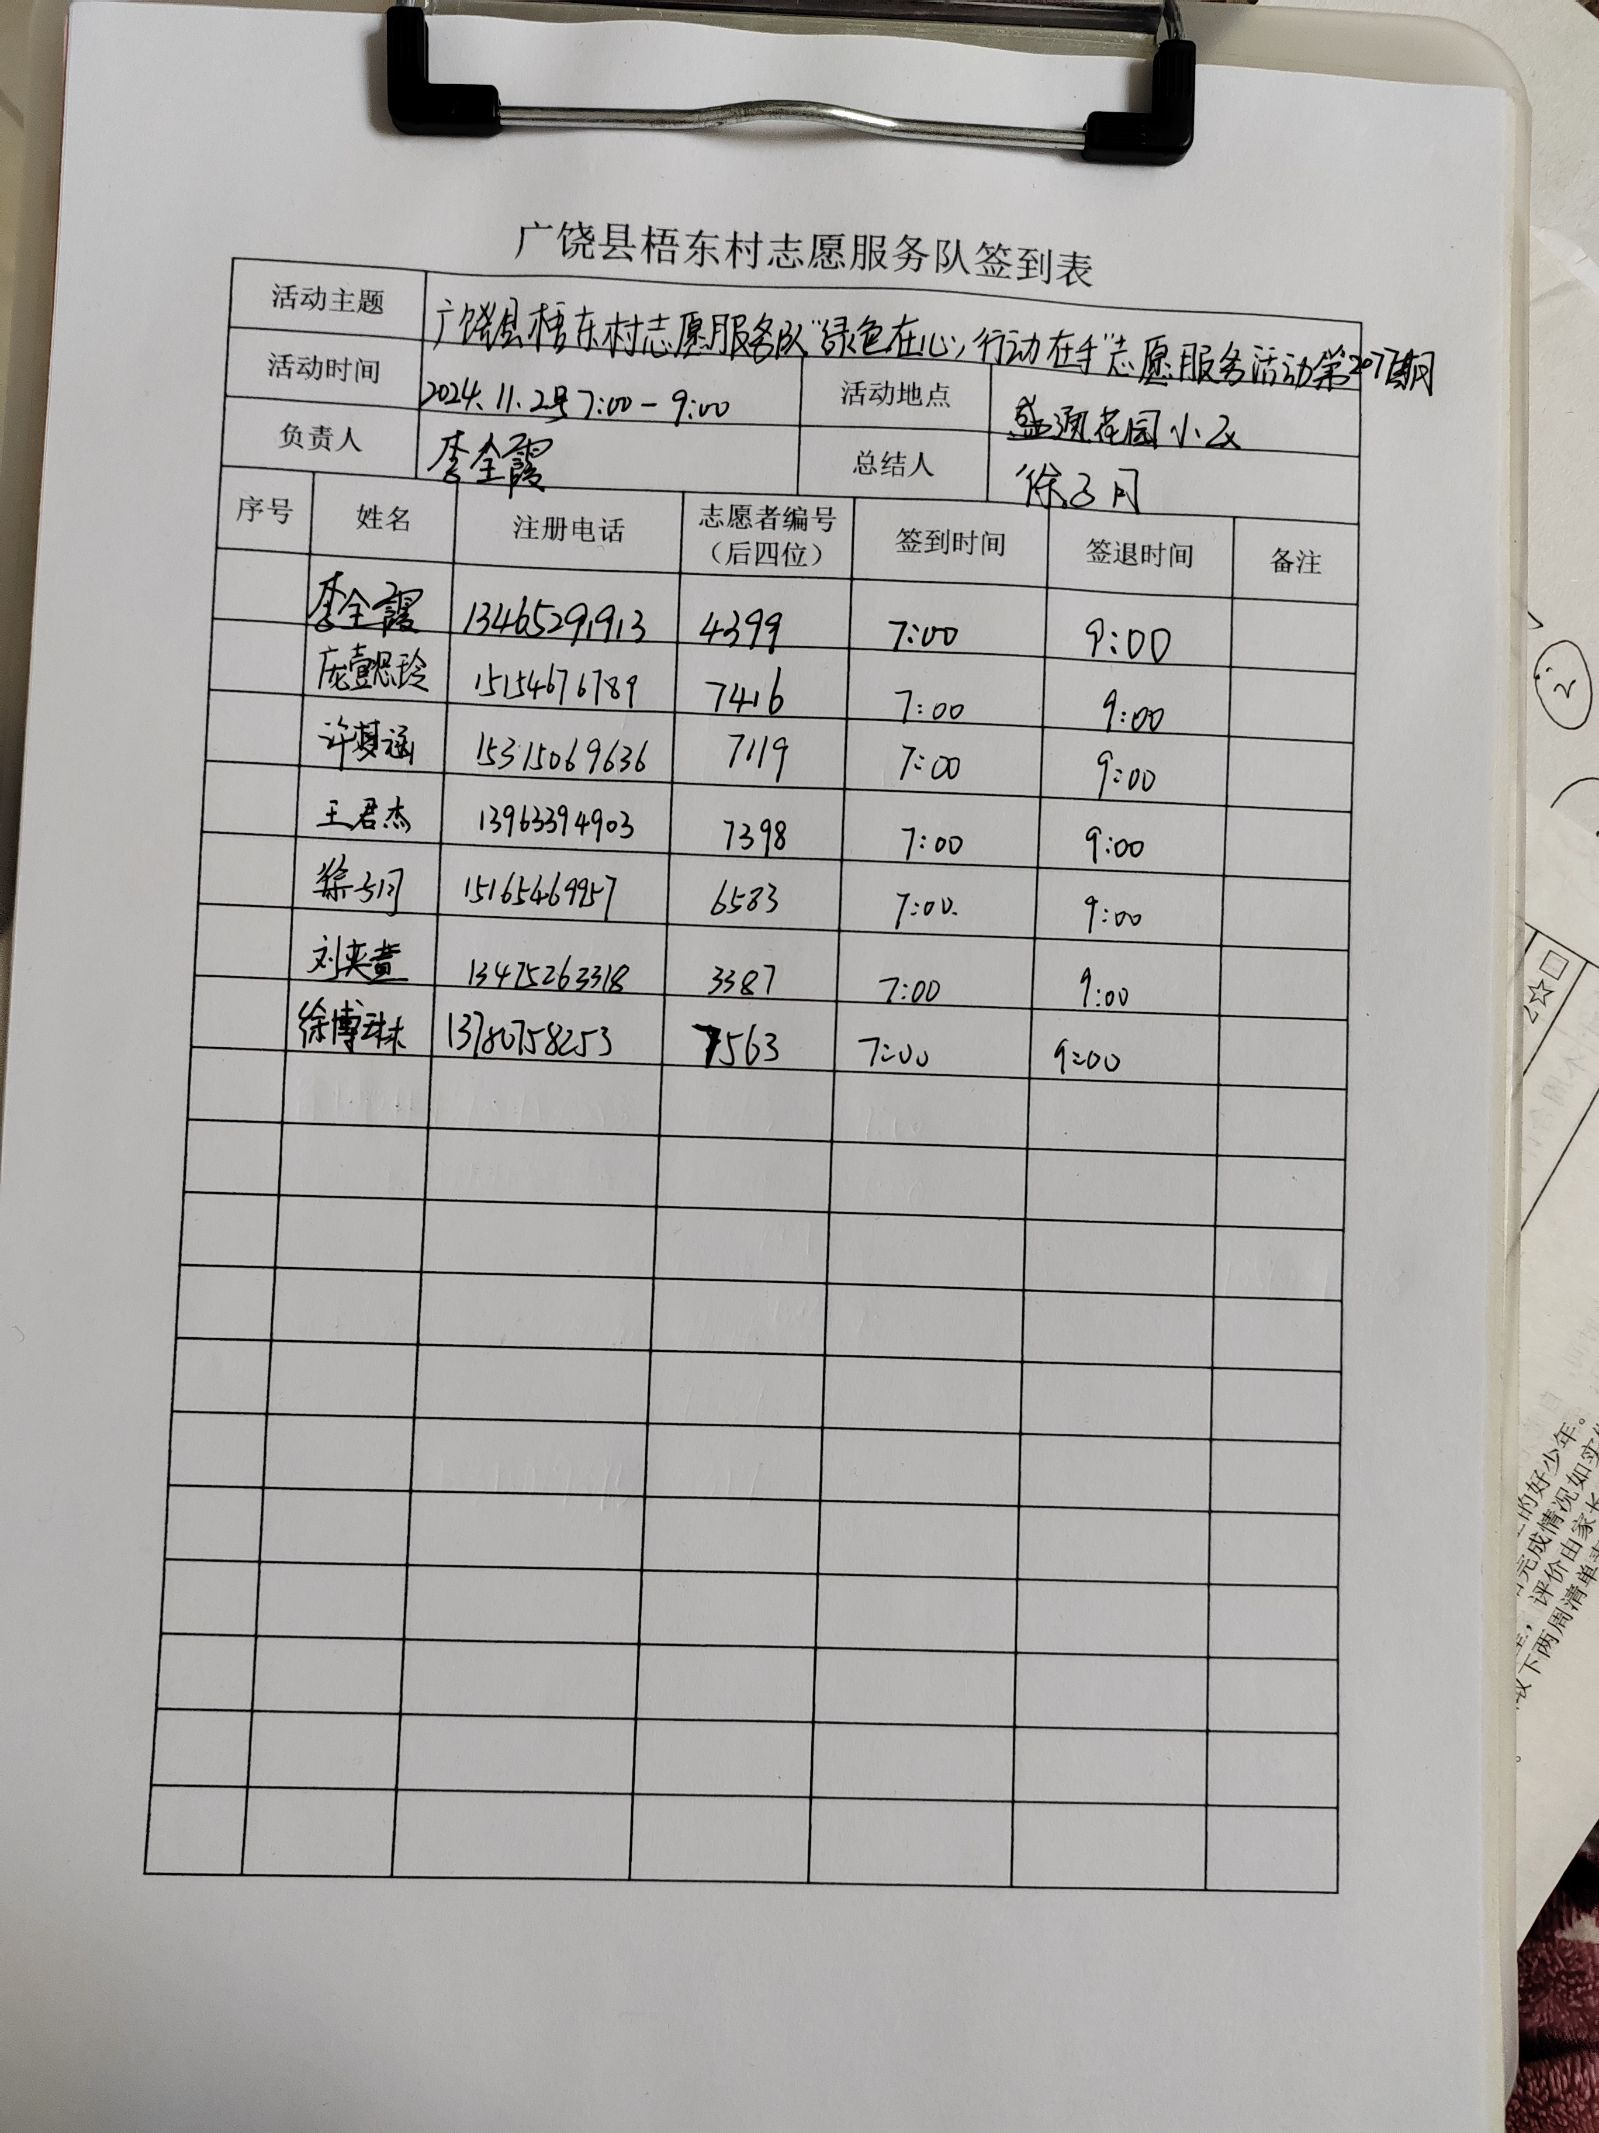 广饶县梧东村志愿服务队签到表
活动主题 广饶县梧东村志愿服务队"绿色在心,行动在手"志愿服务活动第207期
活动时间 2024.11.2号7:00-9:00 活动地点 盛源花园小区
负责人 李全霞 总结人 徐子月
序号 姓名 注册电话 志愿者编号（后四位） 签到时间 签退时间 备注
李全霞 13465291913 4399 7:00 9:00
庞懿玲 15154676789 7416 7:00 9:00
许梦涵 15315069636 7119 7:00 9:00
王君杰 13963394903 7398 7:00 9:00
15165469957 6583 7:00 9:00
刘奕萱 13475263318 3387 7:00 9:00
徐博琳 13780758253 7563 7:00 9:00
2
2☆□
的好少年。
完成情况如实
评价由家长
下两周清单